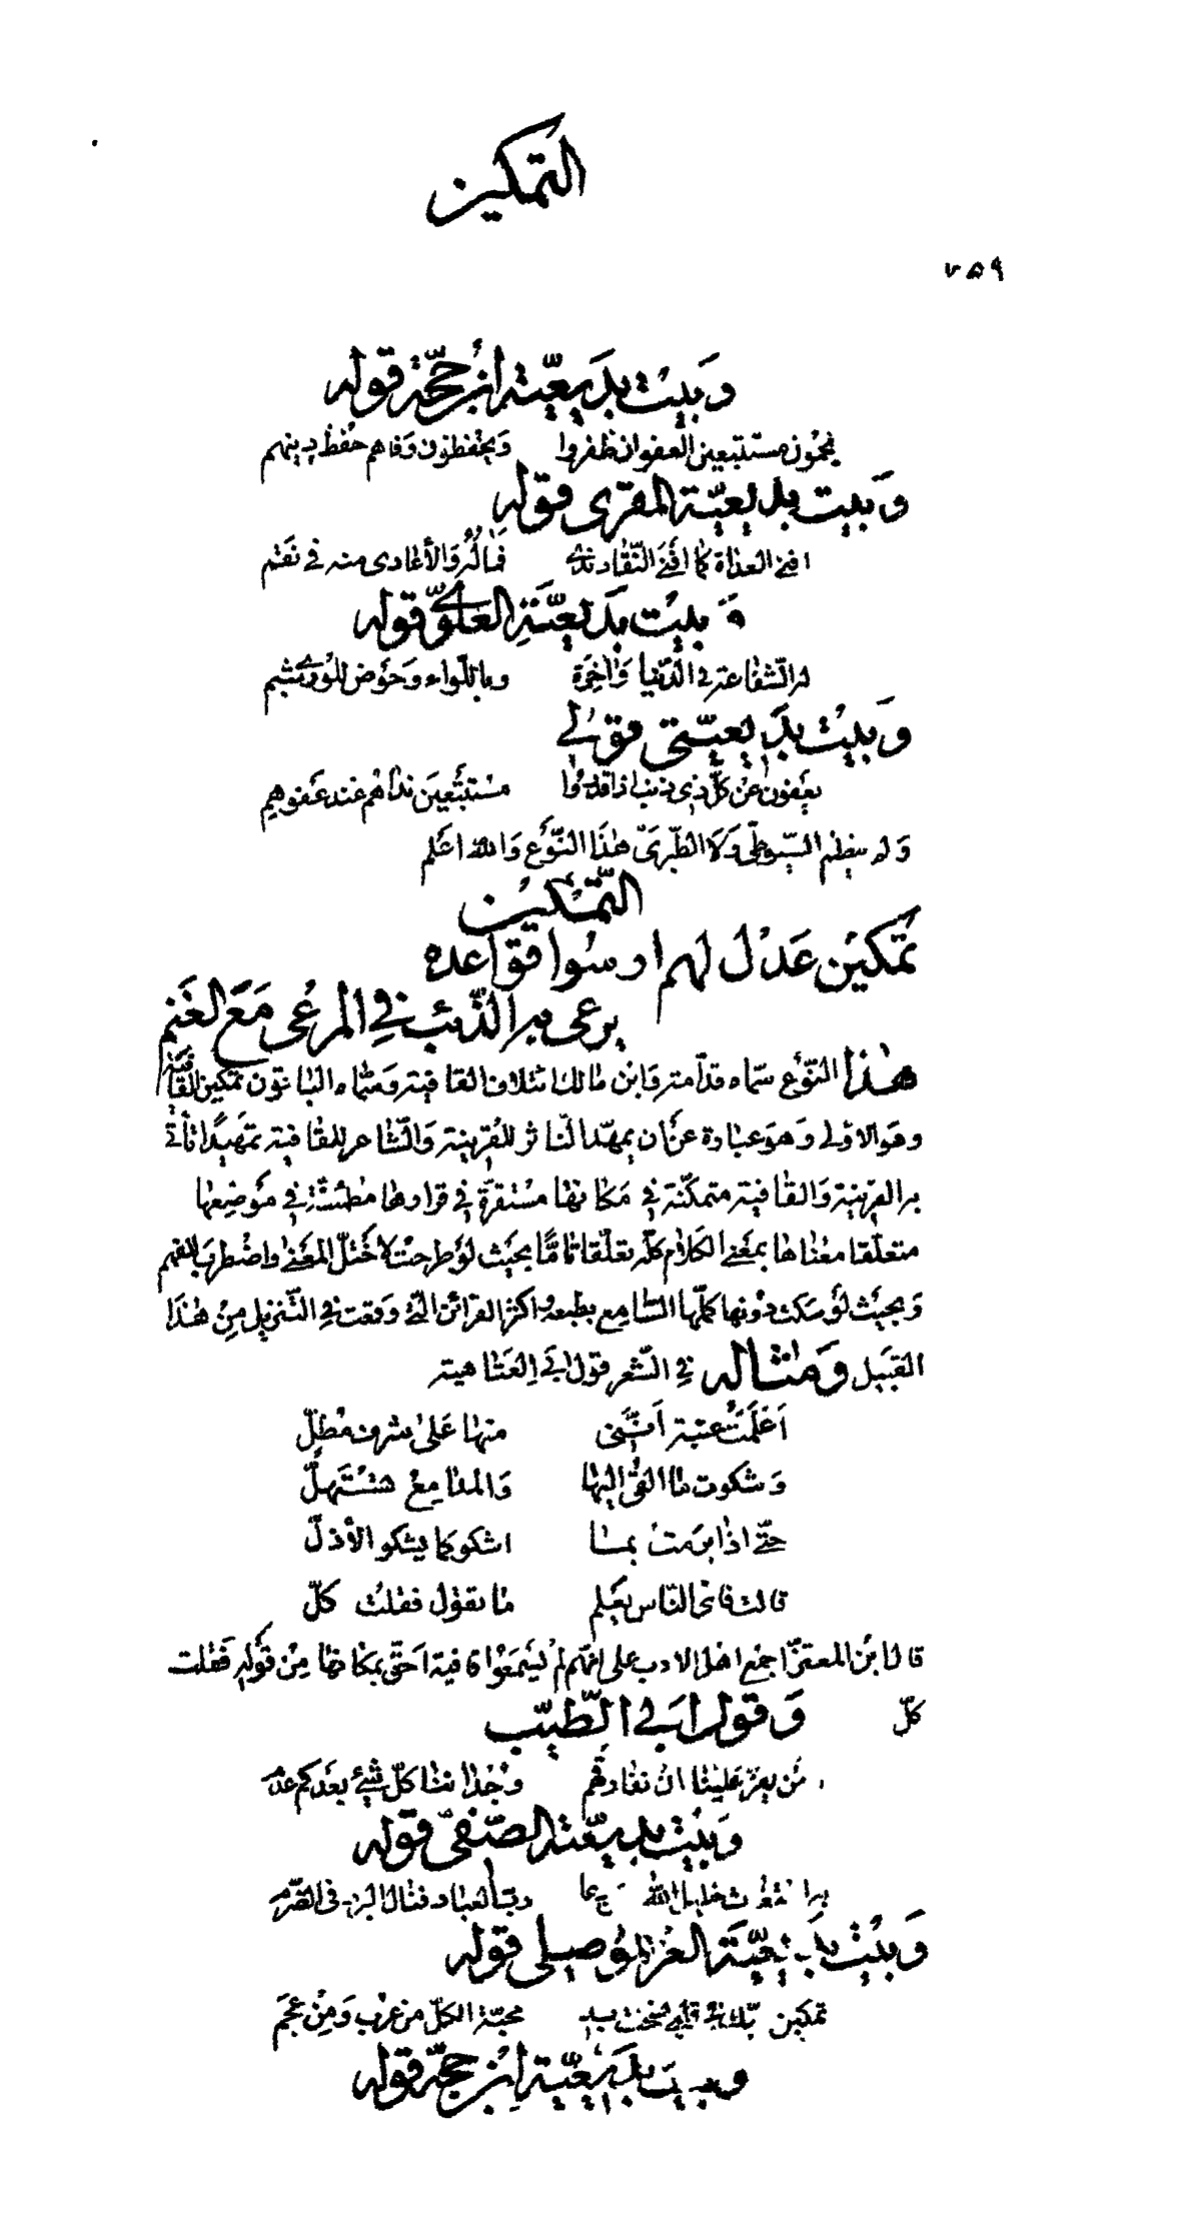 التمكين
٧٥٩
وَبَيْت بَدِيعيّة ابْن حِجّة قوله
يحمون مستتبعين العفو ان ظفروا وَيحفظون وَفاهم حفظ دينهم
وَبيت بديعيّة المقرى قوله
افنى العداة كما افنى النّقاد ندى فَمالُه وَالأعادى منه فى نقم
وَبيْت بَديعيّة العلويّ قوله
له الشّفاعة فى الدّنيا وَاٰخرة وباللّواء وحَوض للورٰى شبم
وَبيْت بَديعيّتى قوْلى
يعفون عن كلّ ذى ذنب اذا قدروا مستتبعين نداهم عند عَفوهم
وَلم ينظم السّيوطىّ وَلَا الطّبرىّ هٰذا النّوْع وَاللّه اعلم
التّمْكيْن
تمكين عَدْل لهم ارسوا قواعده
يرعى به الذّئب فى المرعٰى مَع الغَنم
هٰذا النّوْع سمّاه قدامة وَابن مالك ائتلاف القافية وَسمّاه الباقون تمكين القافية
وهَو الاولى وَهوَ عبارة عن ان يمهّد النّاثر للقرينة وَالشّاعر للقافية تمهيدًا تأتى
به القرينة وَالقافية متمكّنة فى مكانها مسْتقرّة فى قرارها مطمئنّة فى مَوْضعها
متعلّقا معناها بمعنى الكلام كلّه تعلّقا تامًّا بحيث لوْ طرحت لاخْتلّ المعنٰى واضْطرب الفهم
وَبحيث لوْ سكت دونها كمّلها السّامع بطبعه واكثر القرائن الّتى وقعت فى التّنزيل مِنْ هٰذَا
القبيل وَمثاله فى الشّعر قول ابى العتاهية
اَعْلَمْتُ عتبة اَنّنى منها عَلٰى شرف مطلّ
وَشكوت ما القى اليها وَالمدامع تسْتهلّ
حتّى اذا برمت بما اشكو كما يشكو الأذلّ
قالت فاىّ النّاس يعلم ما تقول فقلت كلّ
قال ابن المعتزّ اجمع اهل الادب على انهم لم يسْمَعُوا قافية احقّ بمكانها مِنْ قوْله فقلت
كلّ وَقول ابى الطّيّب
يا مَن يعزّ علينا ان نفارقهم وِجْداننا كلّ شيئ بعدكم عدم
وَبيْت بديعيّة الصّفىّ قوله
به استغاث خليل اللّه حين دعا ربّ العباد فنال البرد فى الضّرم
وَبيْت بديعيّة العزّ الموصلى قوله
تمكين حبّك فى قلبى محبّة الكلّ من عرْب وَمِنْ عجَم
وبيت بَديعيّة ابن حجّة قوله